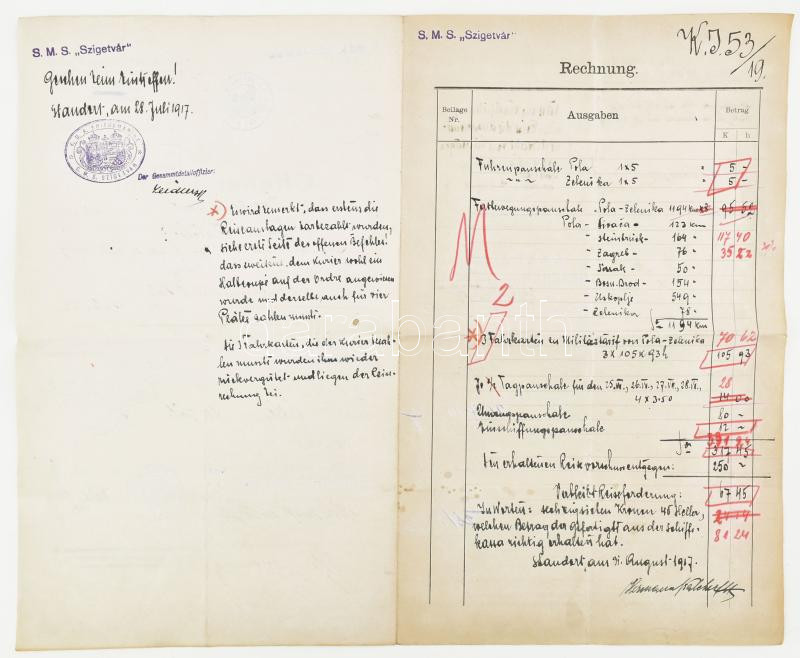 S. M. S. „Szigetvár"
Gesehen beim Eintreffen!
Standort, am 28. Juli 1917.
S.M.S. SZIGETVÁR
Der Gesamtdetailoffizier:
*) Es wird bemerkt, dass erstens die
Reiseauslagen bezahlt wurden,
siehe erste Seite des offenen Befehles:
dass zweitens, dem Kurier wohl ein
Halbcoupé auf der Ordre angewiesen
wurde und derselbe auch für vier
Plätze zahlen musste.
Die 3 Fahrkarten, die der Kurier
zahlen musste wurden ihm wieder
rückvergütet und liegen der Reise-
rechnung bei.
S. M. S. „Szigetvár"
K. J 53/19.
Rechnung.
Beilage Nr.
Ausgaben
Betrag
K h
Fuhrenpauschale Pola 1x5 " 5 -
" " " Zelenika 1x5 " 5 -
Fortbewegungspauschale Pola-Zelenika 1194 km 95 52
Pola - Divača - 123 km
- Steinbrück - 164 " 117 40
- Zagreb - 76 " 35 82
- Sissak - 50 "
- Bosn. Brod - 154 "
- Uskoplje 549 "
- Zelenika 78 "
1194 km
M
2
*) 3 Fahrkarten im Militärtarif von Pola-Zelenika 70 62
3 x 105 x 93 h 105 93
Tagpauschale für den 25.VII., 26.VII., 27.VII., 28.VII., 28
4 x 3·50 14 00
Umzugspauschale 80 ~
Einschiffungspauschale 12 ~
331 24
317 45
Den erhaltenen Reisevorschuss entgegen: 250 ~
Verbleibt Reiseforderung: 67 45
In Worten: sechzigsieben Kronen 45 Heller,
welchen Betrag der Gefertigte aus der Schiffs-
kassa richtig erhalten hat. 81 24
Standort, am 31. August 1917.
Hermann
arabanth